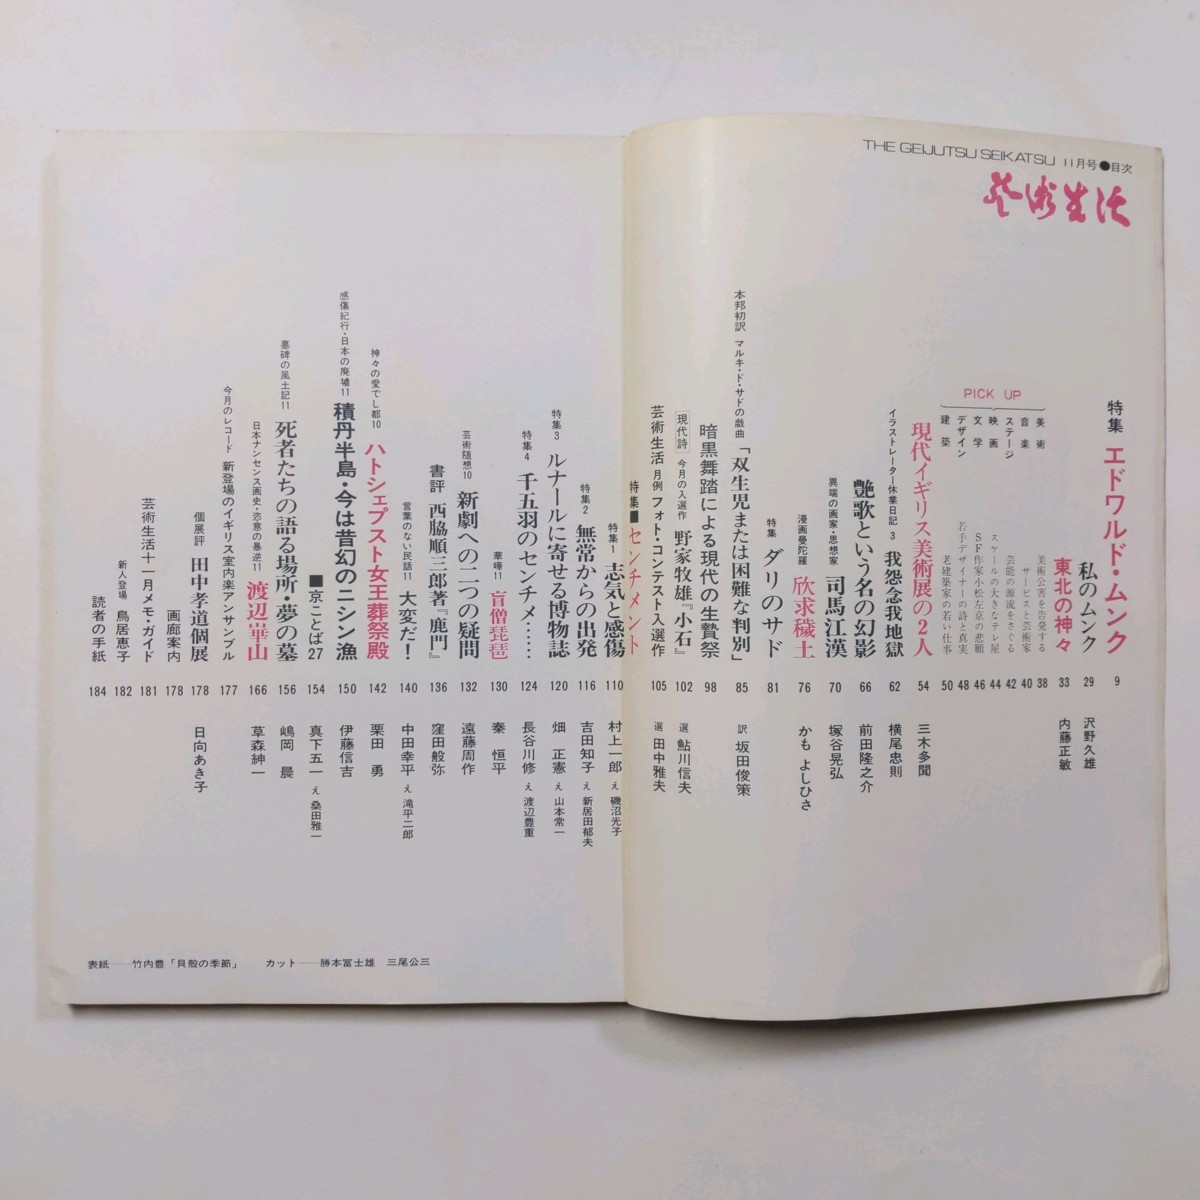 THE GEIJUTSU SEIKATSU 11月号●目次
芸術生活
特集 エドワルド・ムンク 9
私のムンク 29 沢野久雄
東北の神々 33 内藤正敏
PICK UP
美術 美術公害を告発する 38
音楽 サービスと芸術家 40
ステージ 芸能の源流をさぐる 42
映画 スケールの大きなテレ屋 44
文学 SF作家小松左京の悲願 46
デザイン 若手デザイナーの詩と真実 48
建築 老建築家の若い仕事 50
現代イギリス美術展の2人 54 三木多聞
イラストレーター休業日記3 我怨念我地獄 62 横尾忠則
艶歌という名の幻影 66 前田隆之介
異端の画家・思想家 司馬江漢 70 塚谷晃弘
漫画曼陀羅 欣求穢土 76 かもよしひさ
特集 ダリのサド 81
本邦初訳 マルキ・ド・サドの戯曲 「双生児または困難な判別」 85 訳 坂田俊策
暗黒舞踏による現代の生贄祭 98
現代詩 今月の入選作 野家牧雄『小石』 102 選 鮎川信夫
芸術生活 月例フォト・コンテスト入選作 105 選 田中雅夫
特集■センチメント
特集1 志気と感傷 110 村上一郎 え 磯沼光子
特集2 無常からの出発 116 吉田知子 え 新居田郁夫
特集3 ルナールに寄せる博物誌 120 畑正憲 え 山本常一
特集4 千五羽のセンチメ…… 124 長谷川修 え 渡辺豊重
華曄11 盲僧琵琶 130 秦恒平
芸術随想10 新劇への二つの疑問 132 遠藤周作
書評 西脇順三郎著『鹿門』 136 窪田般弥
言葉のない民話11 大変だ! 140 中田幸平 え 滝平二郎
神々の愛でし都10 ハトシェプスト女王葬祭殿 142 栗田勇
感傷紀行・日本の廃墟11 積丹半島・今は昔幻のニシン漁 150 伊藤信吉
■京ことば27 154 真下五一 え 桑田雅一
墓碑の風土記11 死者たちの語る場所・夢の墓 156 嶋岡晨
日本ナンセンス画史・恣意の暴逆11 渡辺崋山 166 草森紳一
今月のレコード 新登場のイギリス室内楽アンサンブル 177
個展評 田中孝道個展 178 日向あき子
画廊案内 178
芸術生活十一月メモ・ガイド 181
新人登場 鳥居恵子 182
読者の手紙 184
表紙――竹内豊「貝殻の季節」 カット――勝本冨士雄 三尾公三